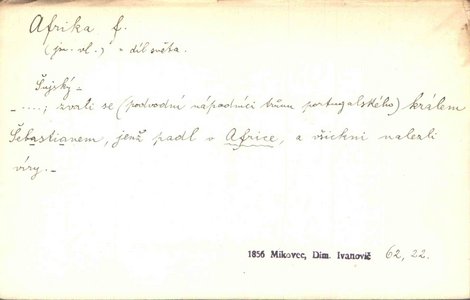 Afrika f.
(jm. vl.) = díl světa.
Šujský –
– ....; zvali se (podvodní nápadníci trůnu portugalského) králem
Šebastianem, jenž padl v Africe, a všickni nalezli
víry. –
1856 Mikovec, Dim. Ivanovič 62, 22.